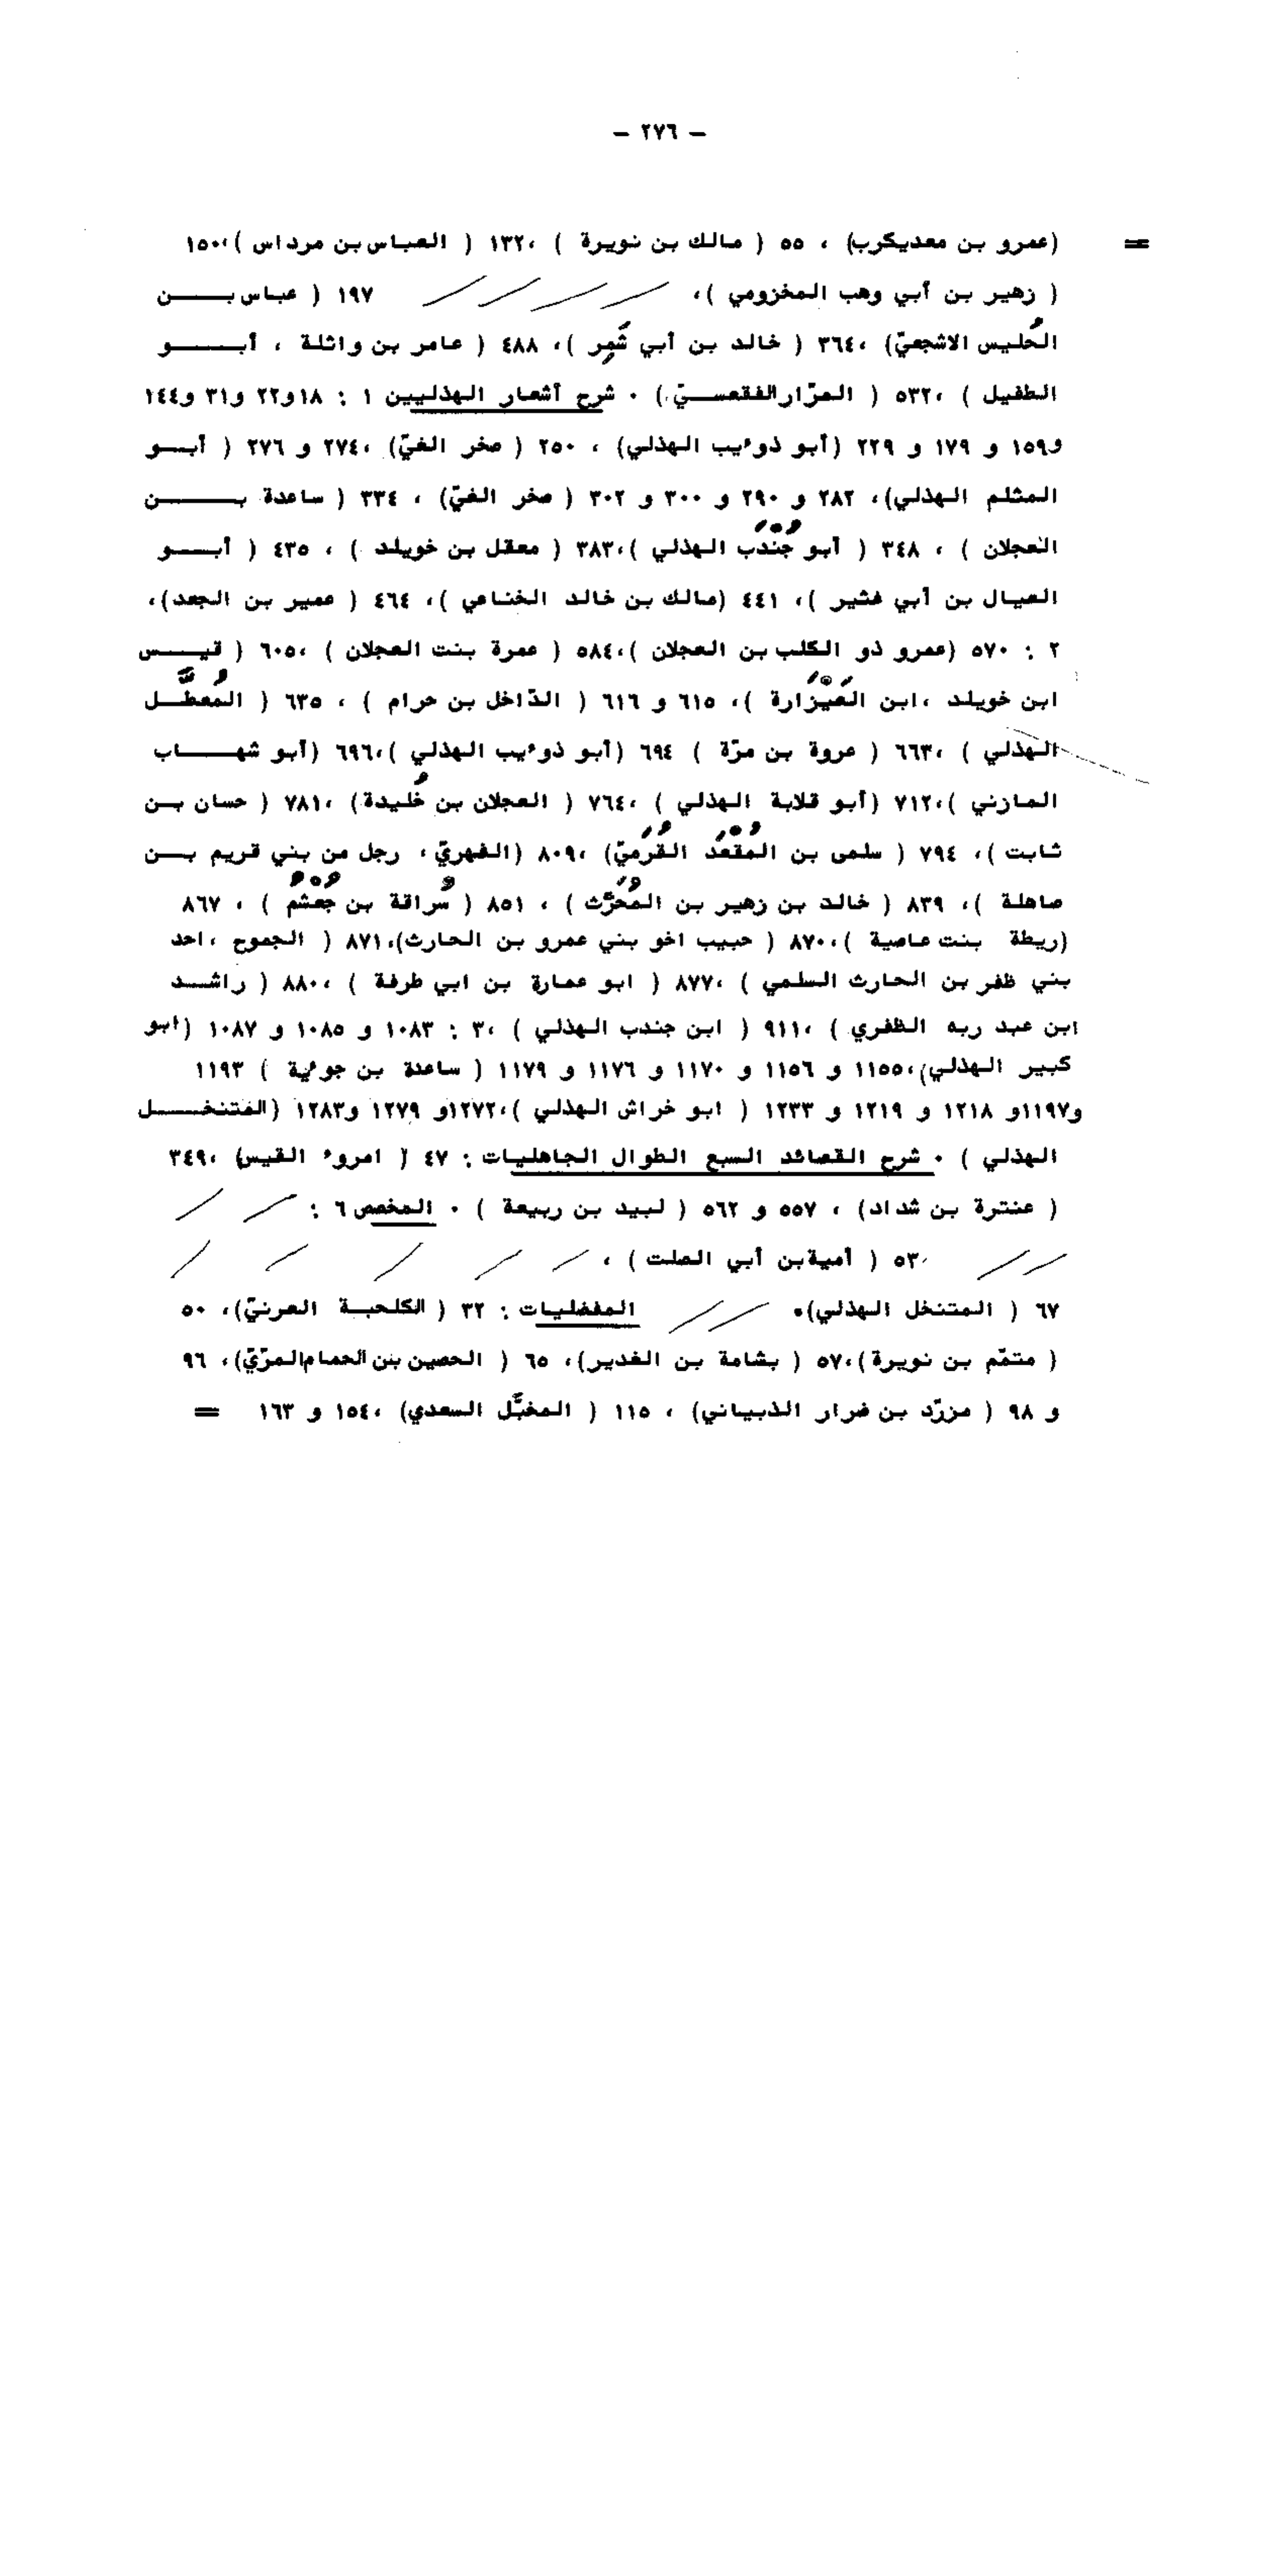 — ٢٧٦ —
= (عمرو بن معديكرب) ، ٥٥ ( مالك بن نويرة ) ،١٣٢ ( العباس بن مرداس )،١٥٠
( زهير بن أبي وهب المخزومي )، ١٩٧ ( عباس بـــن
الحُليس الاشجعيّ) ،٣٦٤ ( خالد بن أبي شَمِر )، ٤٨٨ ( عامر بن واثلة ، أبـــو
الطفيل ) ،٥٣٢ ( المرّار الفقعســيّ ) ٠ شرح أشعار الهذليين ١ : ١٨و٢٢ و٣١ و١٤٤
و١٥٩ و ١٧٩ و ٢٢٩ (أبو ذوءيب الهذلي) ، ٢٥٠ ( صخر الغيّ) ،٢٧٤ و ٢٧٦ ( أبــو
المثلم الهذلي)، ٢٨٢ و ٢٩٠ و ٣٠٠ و ٣٠٢ ( صخر الغيّ) ، ٣٣٤ ( ساعدة بـــن
العجلان ) ، ٣٤٨ ( أبو جُنْدَب الهذلي )،٣٨٣ ( معقل بن خويلد ) ، ٤٣٥ ( أبـــو
العيال بن أبي غثير )، ٤٤١ (مالك بن خالد الخناعي )، ٤٦٤ ( عمير بن الجعد)،
٢ : ٥٧٠ (عمرو ذو الكلب بن العجلان )،٥٨٤ ( عمرة بنت العجلان ) ،٦٠٥ ( قيــس
ابن خويلد ،ابن العَيْزَارة )، ٦١٥ و ٦١٦ ( الدّاخل بن حرام ) ، ٦٣٥ ( المُعطَّــل
الهذلي ) ،٦٦٣ ( عروة بن مرّة ) ٦٩٤ (أبو ذوءيب الهذلي )،٦٩٦ (أبو شهــاب
المازني )،٧١٢ (أبو قلابة الهذلي ) ،٧٦٤ ( العجلان بن خُليدة) ،٧٨١ ( حسان بــن
ثابت )، ٧٩٤ ( سلمى بن المُقْعَد القُرَميّ) ،٨٠٩ (الفهريّ ، رجل من بني قريم بــن
صاهلة )، ٨٣٩ ( خالد بن زهير بن المُحَرِّث ) ، ٨٥١ ( سُراقة بن جُعْشُم ) ، ٨٦٧
(ريطة بنت عاصية )،٨٧٠ ( حبيب اخو بني عمرو بن الحارث)،٨٧١ ( الجموح ،احد
بني ظفر بن الحارث السلمي ) ،٨٧٧ ( ابو عمارة بن ابي طرفة ) ،٨٨٠ ( راشــد
ابن عبد ربه الظفري ) ،٩١١ ( ابن جندب الهذلي ) ،٣ : ١٠٨٣ و ١٠٨٥ و ١٠٨٧ (ابو
كبير الهذلي)،١١٥٥ و ١١٥٦ و ١١٧٠ و ١١٧٦ و ١١٧٩ ( ساعدة بن جوءية ) ١١٩٣
و١١٩٧و ١٢١٨ و ١٢١٩ و ١٢٣٣ ( ابو خراش الهذلي )،١٢٧٢و ١٢٧٩ و١٢٨٣ (المتنخــل
الهذلي ) ٠ شرح القصائد السبع الطوال الجاهليات : ٤٧ ( امروء القيس) ،٣٤٩
( عنترة بن شداد) ، ٥٥٧ و ٥٦٢ ( لبيد بن ربيعة ) ٠ المخصص ٦ :
٥٣ ( أميةبن أبي الصلت ) ،
٦٧ ( المتنخل الهذلي)٠ المفضليات : ٣٢ ( الكلحبـة العرنيّ)، ٥٠
( متمّم بن نويرة )،٥٧ ( بشامة بن الغدير)، ٦٥ ( الحصين بن الحمام المرّيّ)، ٩٦
و ٩٨ ( مزرّد بن ضرار الذبياني) ، ١١٥ ( المخبَّل السعدي) ،١٥٤ و ١٦٣ =